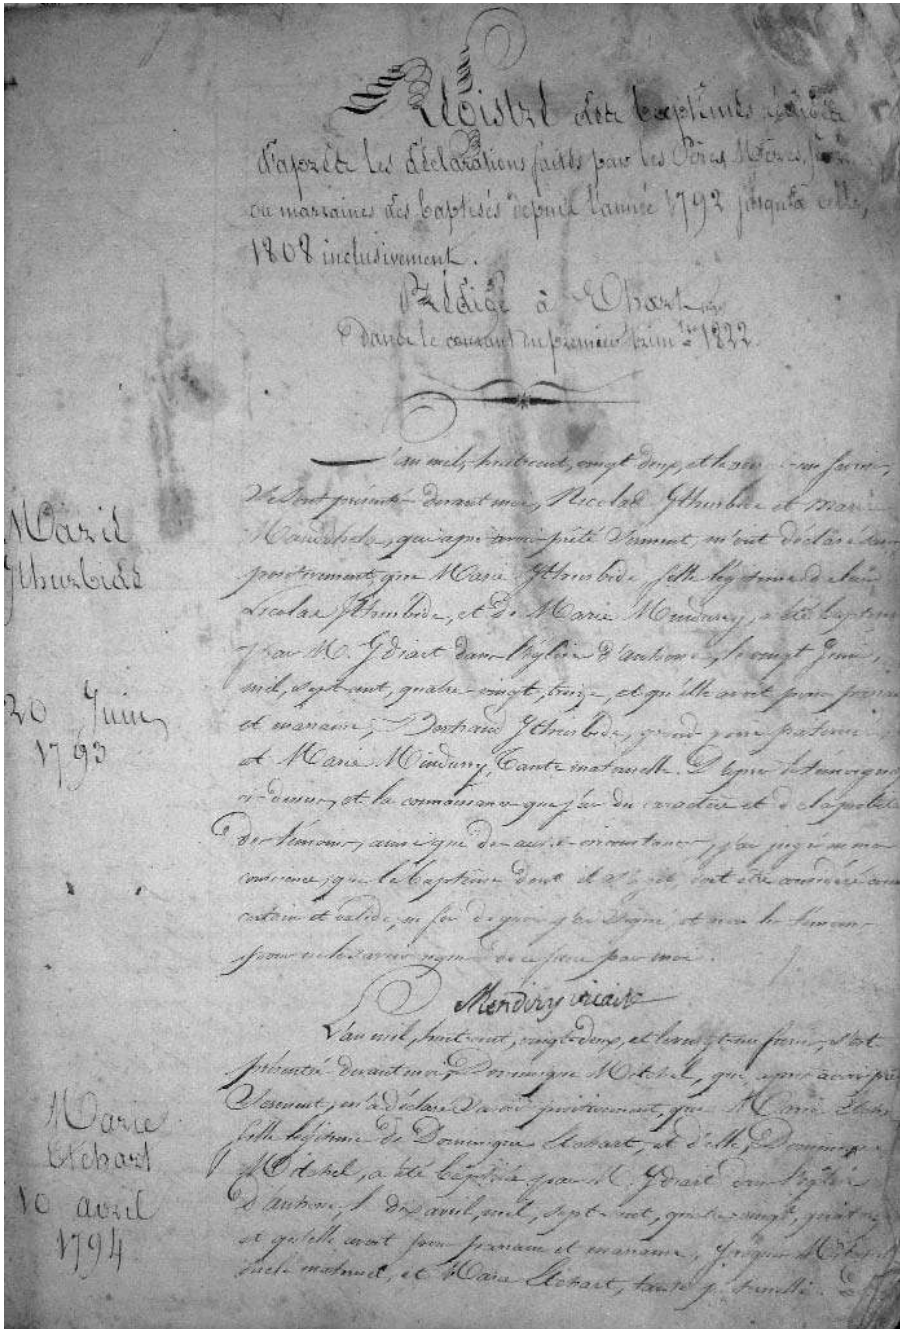 Registre des baptêmes rédigé
d'après les déclarations faites par les Pères, Mères,
ou marraines des baptisés depuis l'année 1792 jusqu'à celle,
1808 inclusivement.
Rédigé à
Dans le courant du premier trim.tre 1822.
L'an mil, huit cent, vingt deux, et le
se sont présentés devant moi, Nicolas Ithurbide et Marie
qui après avoir prêté serment, m'ont déclaré
positivement, que Marie Ithurbide, fille légitime de
Nicolas Ithurbide, et de Marie Mendiry, a été baptisée
par M. Idiart dans l'église d' le vingt Juin,
mil, sept cent, quatre vingt, treize, et qu'elle avoit pour parrain
et marraine, Bertrand Ithurbide, grand père paternel
et Marie Mendiry, Tante maternelle. D'après
ci-dessus, et la connaissance que j'ai du caractère et de la probité
des témoins, ainsi que des autres circonstances, j'ai jugé en ma
conscience, que le baptême dont il s'agit, doit être considéré comme
certain et valide, en foi de quoi j'ai signé, et non les témoins
pour ne le savoir de ce par moi.
Mendiry vicaire
L'an mil, huit cent, vingt-deux, et le vingt-un s'est
présentée devant moi, Dominique que après avoir prêté
Serment, m'a déclaré savoir positivement, que Marie Etchart
fille légitime de Dominique Etchart, et d'elle, Dominique
a été baptisée par M. Idiart dans l'église
d' le dix avril, mil, sept cent, quatre vingt, quatorze
et qu'elle avoit pour parrain et marraine,
oncle maternel, et Etchart, tante paternelle.
Marie
Ithurbide
20 Juin
1793
Marie
Etchart
10 avril
1794